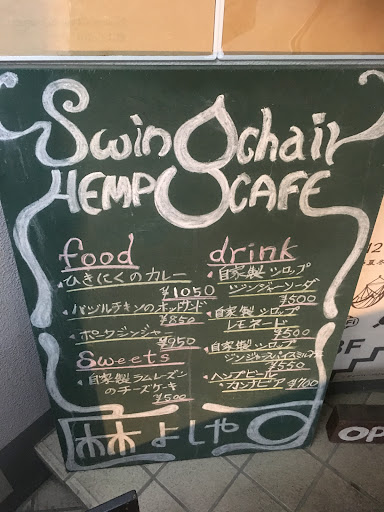 Swingchair
HEMP CAFE
food
ひきにくのカレー
¥1050
バジルチキンのホットサンド
¥850
ポークジンジャー
¥950
Sweets
自家製ラムレーズン
のチーズケーキ
¥500
drink
自家製シロップ
ジンジャーソーダ
¥500
自家製シロップ
レモネード
¥500
自家製シロップ
ジンジャースパイスミルク
¥550
ヘンプビール
カンナビア ¥700
よしや
12
BF
OP